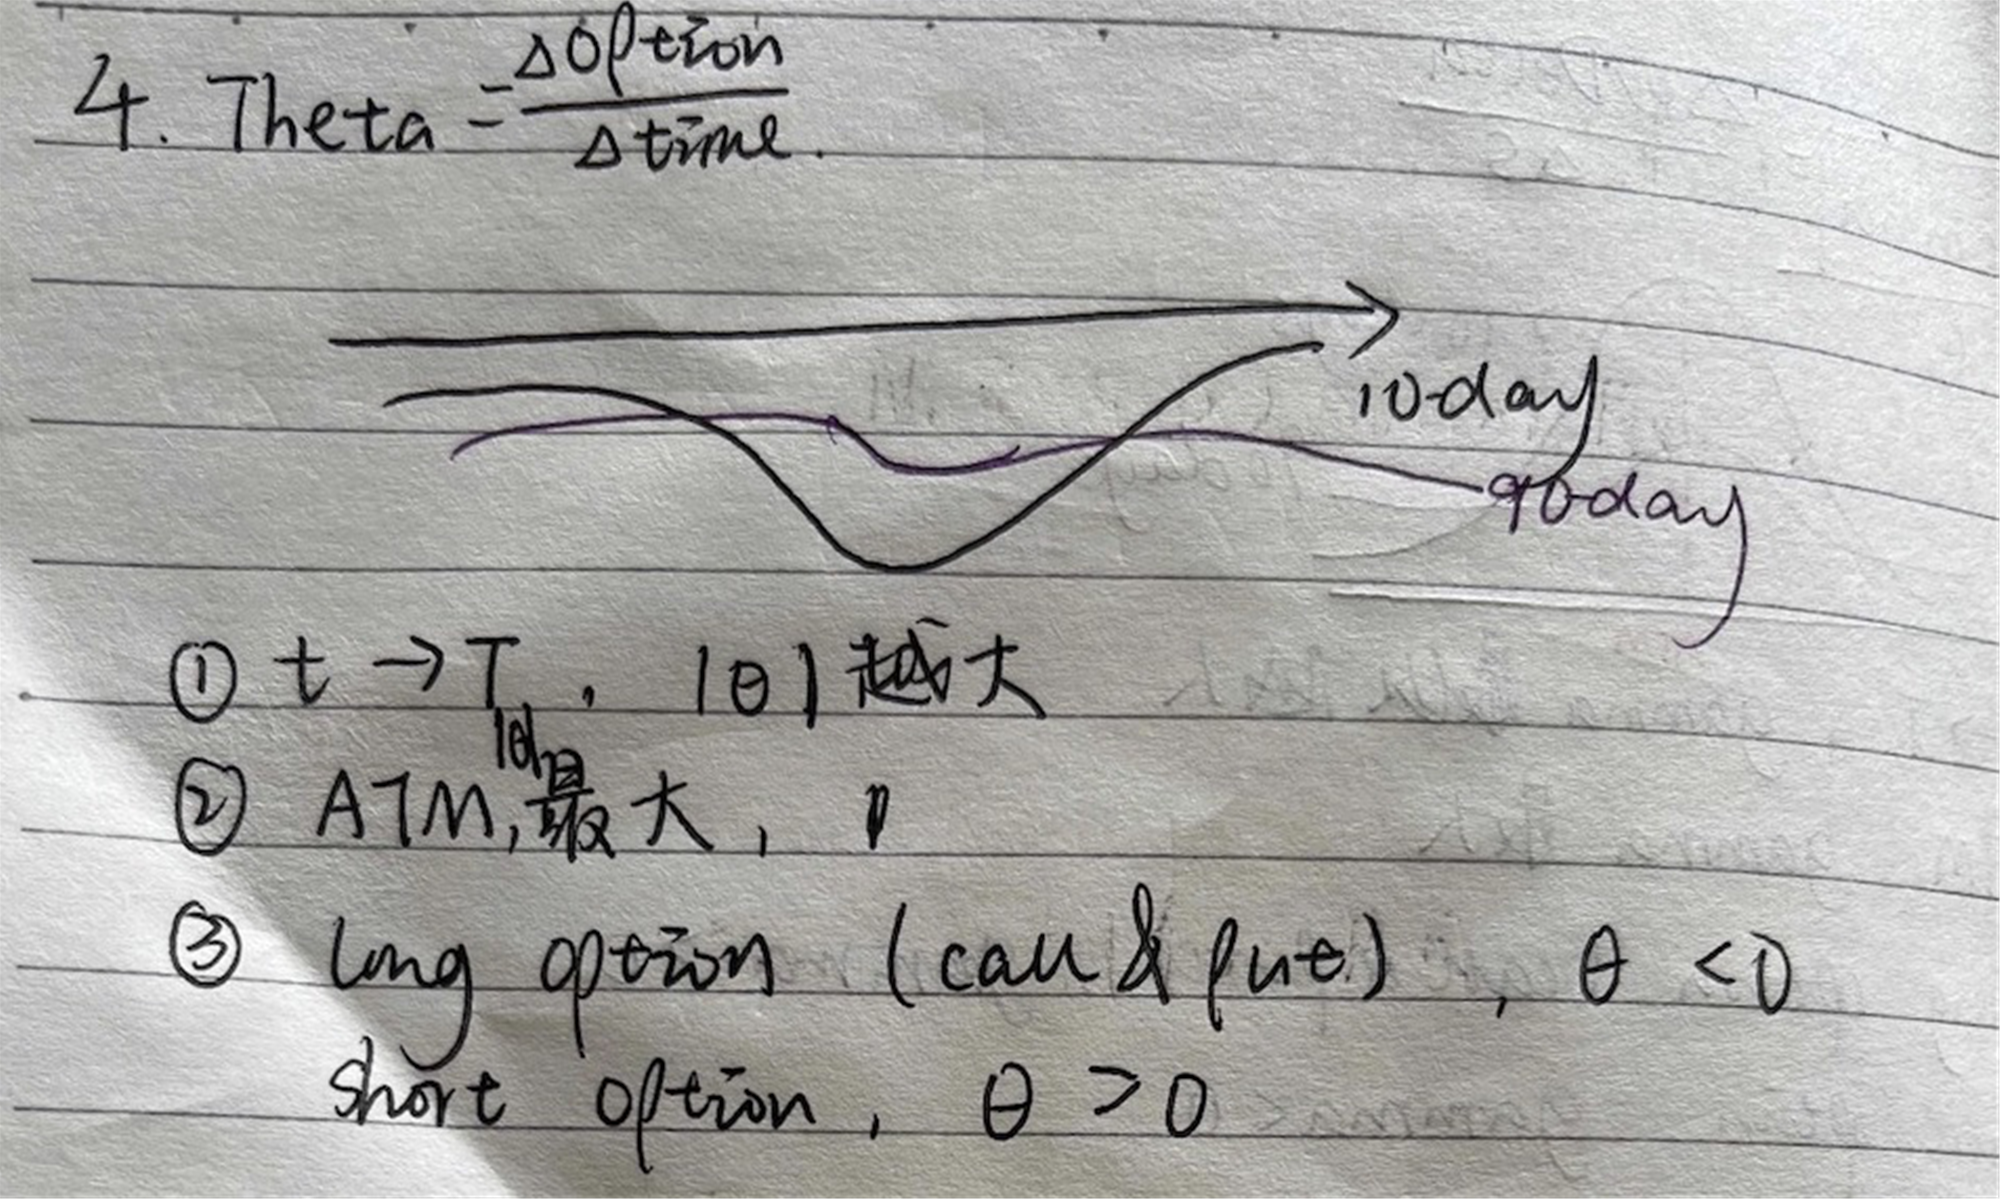 4. Theta = ΔOption / Δtime.
10-day
90-day
① t → T, |θ| 越大
② ATM, |θ| 最大,
③ long option (call & put), θ < 0
short option, θ > 0